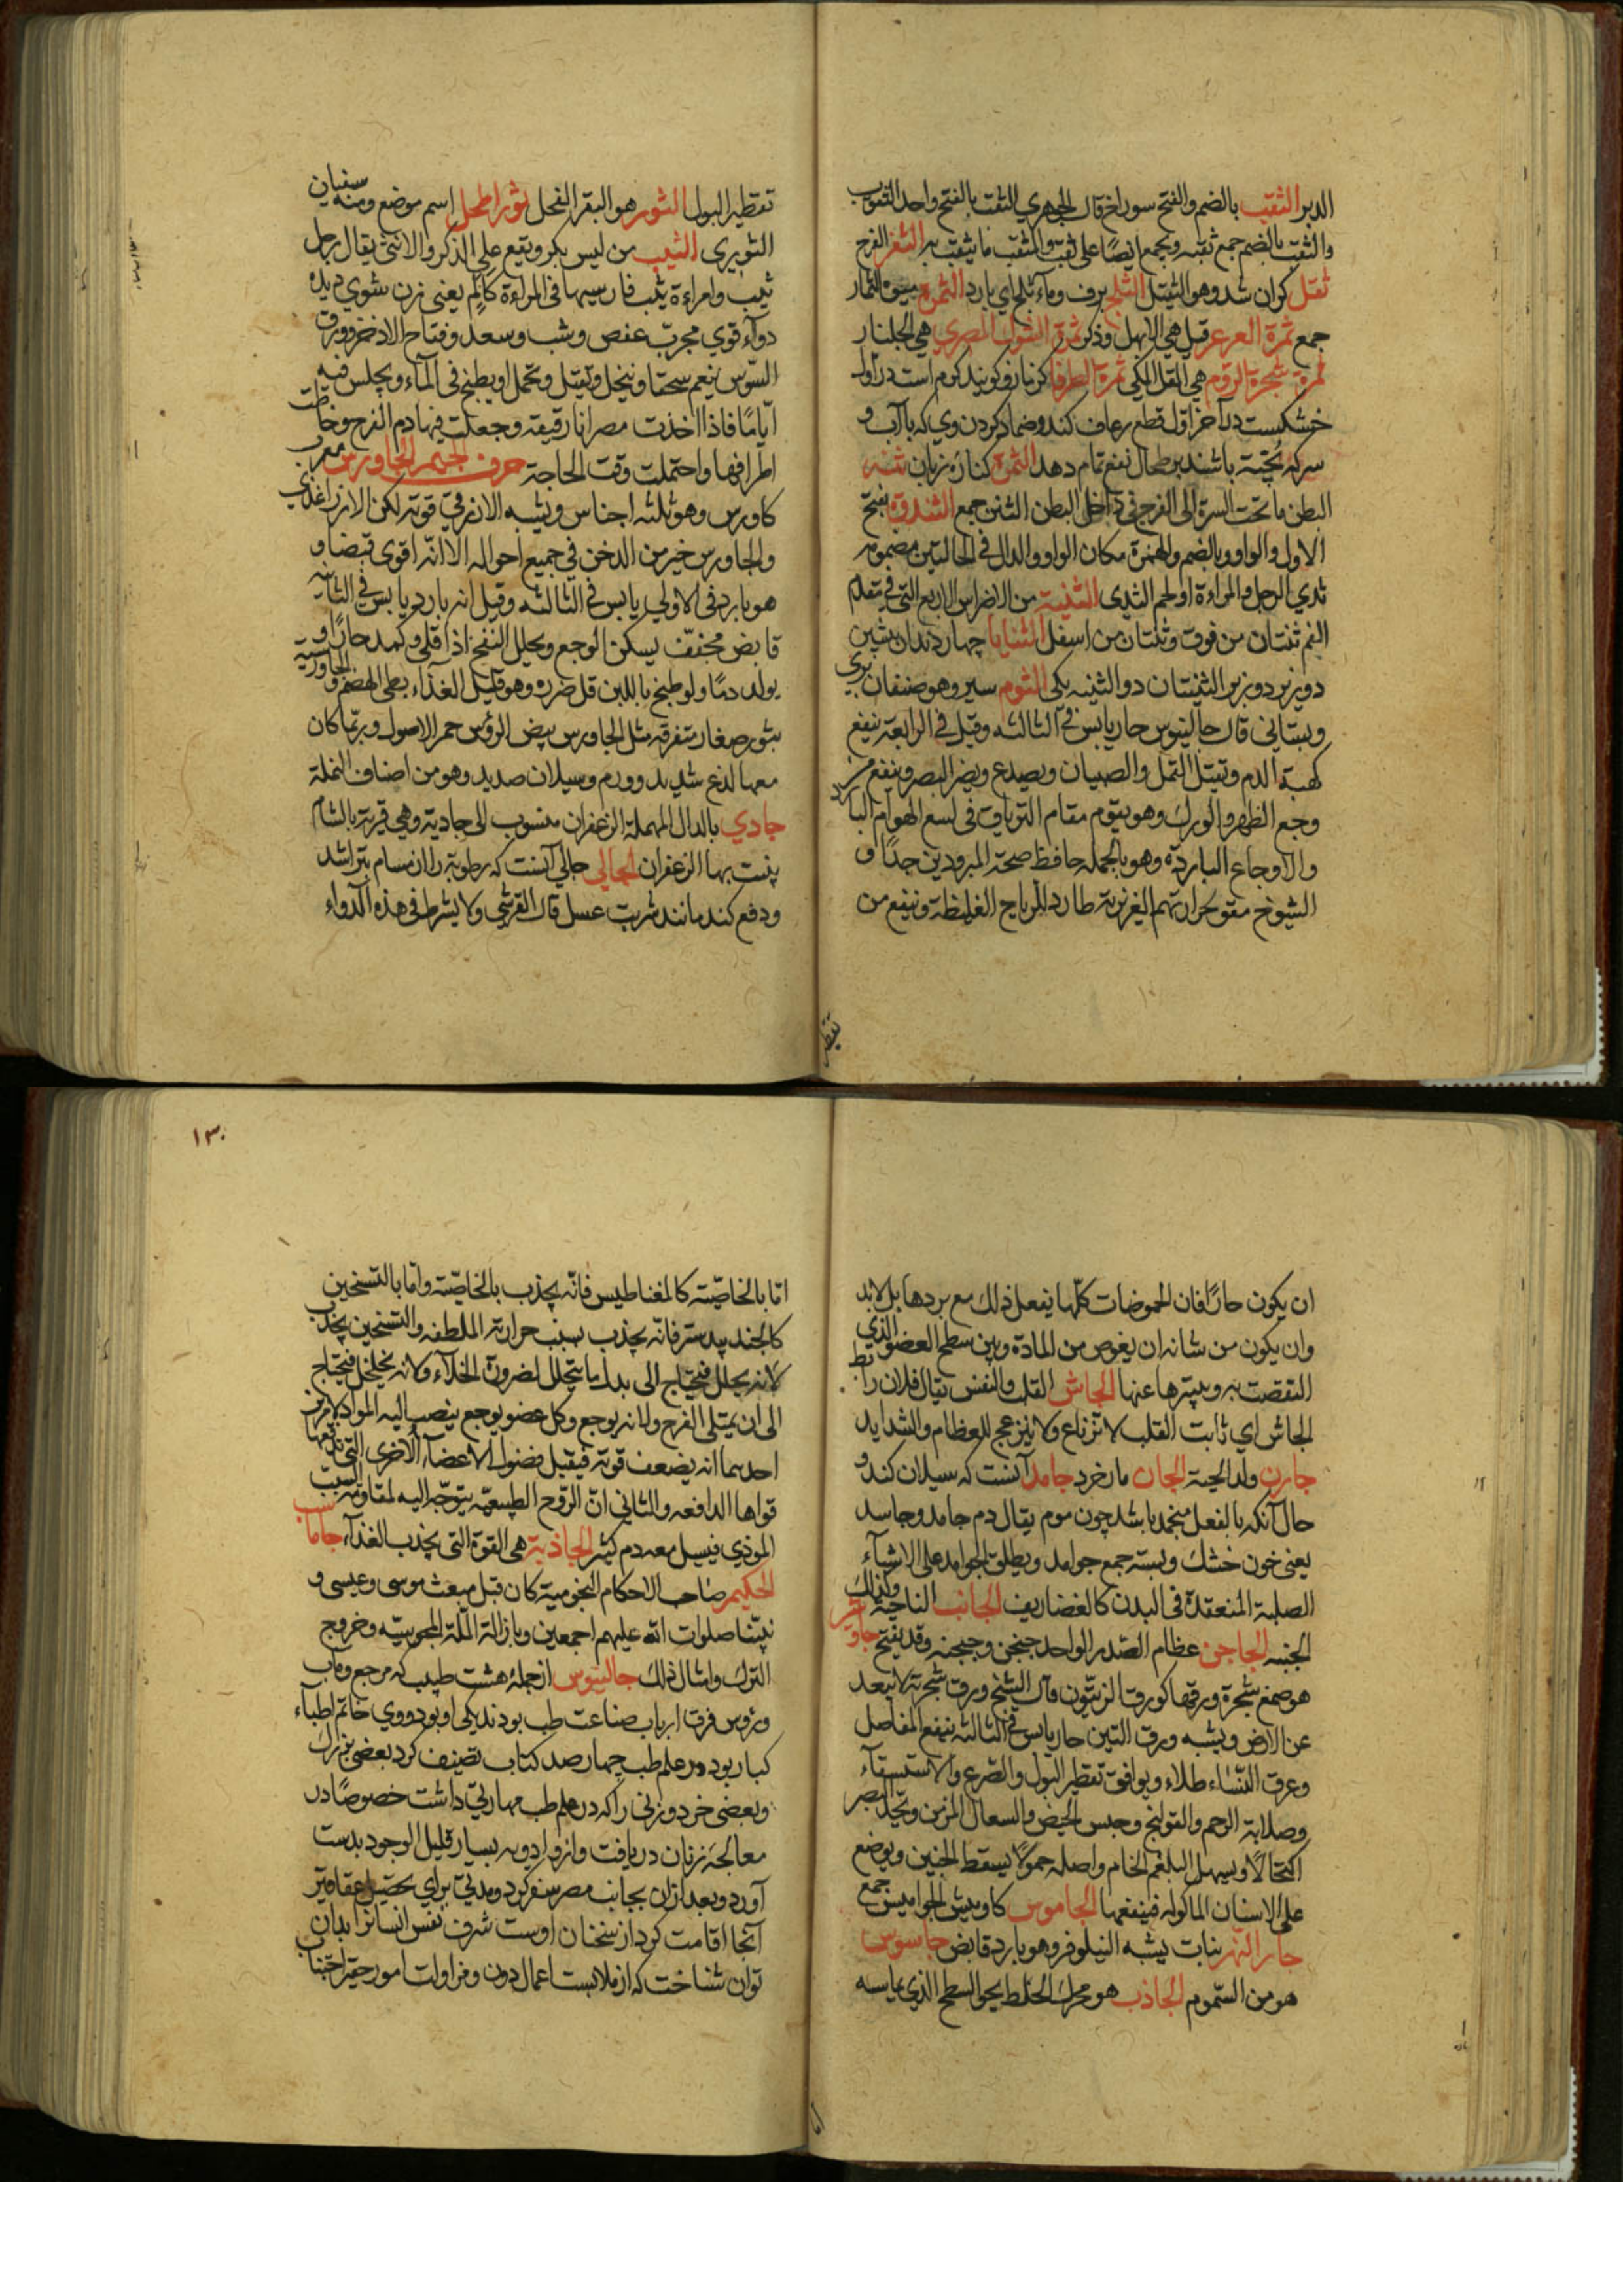 الدبر الثقب بالضم والفتح سوراخ قال الجوهري الثقب بالفتح واحد الثقوب
والثقب بالضم جمع ثقبه ويجمع ايضًا على ثقب والمثقب ما يثقب به الثغر الفرج
ثقل كران شد وهو الثقيل الثلج برف وماء ثلج اي بارد الثمره ميوه الثمار
جمع ثمرة العرعر قيل هي الابهل وذكر ثمرة الشوك المصري هي الجلنار
ثمرة شجرة الزقوم هي المقل المكي ثمرة الطرفا كزمازو كويند كرم است در اول
خشكست در آخر اول قطع رعاف كند وضماد كردن وي كه با آب و
سركه پخته باشند بر طحال نفع تمام دهد الثمرة كناره زبان ثنه
البطن ما تحت السرة الى الفرج في داخل البطن الثنن جمع الثندوة بفتح
الاول والواو وبالضم والهمزة مكان الواو والدال في الحالتين مضموم
ثدي الرجل والمراءة او لحم الثدى الثنية من الاضراس الاربع التي في مقدم
الفم ثنتان من فوق وثنتان من اسفل الثنايا چهار دندان پيشين
دو زبر دو زير الثنيتان دو الثنيه يكى الثوم سير وهو صنفان بري
وبستاني قال جالينوس حار يابس في الثالثه وقيل في الرابعة ينفع
كهبة الدم ويقتل القمل والصيبان ويصدع ويضر البصر وينفع من
وجع الظهر والورك وهو يقوم مقام الترياق في لسع الهوام الباردة
والاوجاع الباردة وهو بالجملة حافظ صحة المبرودين جدًا و
الشيوخ مقو لحرارتهم الغريزية طارد للرياح الغليظة وينفع من
تقطير
تقطير البول الثور هو البقر الفحل ثور اطحل اسم موضع ومنه سفيان
الثوري الثيب من ليس بكر ويقع على الذكر والانثى يقال رجل
ثيب وامراءة ثيب فارسيها في المراءة كالم يعنى زن شوي ديده
دواء قوي مجرب عفص وشب وسعد وفقاح الاذخر وورق
السوس ينعم سحقا وينخل ويفتل ويحمل او يطبخ في الماء ويجلس فيه
ايامًا فاذا اخذت مصرانا رقيقة وجعلت فيها دم الفرخ وخاطت
اطرافها واحتملت وقت الحاجة حرف الجيم الجاورس معرب
كاورس وهو ثلثه اجناس ويشبه الارز في قوته لكن الارز اغذى
والجاورس خير من الدخن في جميع احواله الا انه اقوى قبضا و
هو بارد في الاولى يابس في الثالثه وقيل انه بارد يابس في الثانيه
قابض مجفف يسكن الوجع ويحلل النفخ اذا قلي وكمد حارًا و
يولد دمًا ولو طبخ باللبن قل ضرره وهو قليل الغذاء بطى الهضم و الجاورسيه
بثور صغار متفرقه مثل الجاورس بيض الرؤس حمر الاصول وربما كان
معها لذع شديد وورم وسيلان صديد وهو من اصناف النملة
جادي بالدال المهملة الزعفران منسوب الى جادية وهي قرية بالشام
ينبت بها الزعفران الجالي جالي آنست كه رطوبة را از مسام بتراشد
ودفع كند مانند شربت عسل قال القرشي ولا يشرط في هذه الدواء
ان يكون حارًا فان الحموضات كلها يفعل ذلك مع بردها بل لابد
وان يكون من شانه ان يغوص من المادة وبين سطح العضو الذي
التقصت به ويبترها عنها الجاش القلب والنفس يقال فلان رابط
الجاش اي ثابت القلب لا ترتاع ولا ينزعج للعظام والشدايد
جارن ولد الحية الجان مار خرد جامد آنست كه سيلان كند و
حال آنكه بالفعل منجمد باشد چون موم يقال دم جامد وجاسد
يعنى خون خشك وبسته جمع جوامد ويطلق الجوامد على الاشياء
الصلبة المنعقدة في البدن كالغضاريف الجانب الناحية وكذلك
الجنبه الجاجن عظام الصدر الواحد جنجن وجنجنه وقد يفتح جاوشير
هو صمغ شجرة ورقها كورق الزيتون قال الشيخ ورق شجرته لا يبعد
عن الارض ويشبه ورق التين حار يابس في الثالثه ينفع المفاصل
وعرق النساء طلاء ويوافق تقطير البول والصرع والاستسقاء
وصلابة الرحم والقولنج وحبس الحيض والسعال المزمن ويحد البصر
اكتحالاً ويسهل البلغم الخام واصله حمولاً يسقط الجنين ويوضع
على الاسنان الماكوله فينفعها الجاموس كاوميش الجواميس جمع
جار النهر نبات يشبه النيلوفر وهو بارد قابض جاسوس
هو من السموم الجاذب هو محرك الخلط نحو السطح الذي يماسه
١٣٠
اما بالخاصية كالمغناطيس فانه يجذب بالخاصية واما بالتسخين
كالجندبيدستر فانه يجذب بسبب حرارته الملطفه والتسخين يجذب
لانه يحلل فيحتاج الى بدل ما يتحلل لضرورة الخلاء ولانه يخلخل فيحتاج
الى ان يمتلى الفرج ولانه يوجع وكل عضو يوجع ينصب اليه المواد لامرين
احدهما انه يضعف قوته فيقبل فضول الاعضاء الاخرى التي تدفعها
قواها الدافعه والثاني ان الروح الطبيعه يتوجه اليه لمقاومه السبب
الموذي فيسيل معه دم كثير الجاذبة هي القوة التي يجذب الغذاء جاماسب
الحكيم صاحب الاحكام النجومية كان قبل مبعث موسى وعيسى و
نبينا صلوات الله عليهم اجمعين وبازالة الملة المجوسيه وخروج
الترك وامثال ذلك جالينوس از جملهٔ هشت طبيب كه مرجع وماب
ورؤس فرق ارباب صناعت طب بودند يكى او بود ووي خاتم اطباء
كبار بود در علم طب چهار صد كتاب تصنيف كرد بعضى بزرك
وبعضى خرد وزنى را كه در علم طب مهارتى داشت خصوصًا در
معالجهٔ زنان دريافت وازو ادويه بسيار قليل الوجود بدست
آورد وبعد ازان بجانب مصر سفر كرد ومدتى براي تحصيل عقاقير
آنجا اقامت كرد از سخنان اوست شرف نفس انسانرا بدان
توان شناخت كه از ملابست اعمال دون ومزاولت امور حقير اجتناب